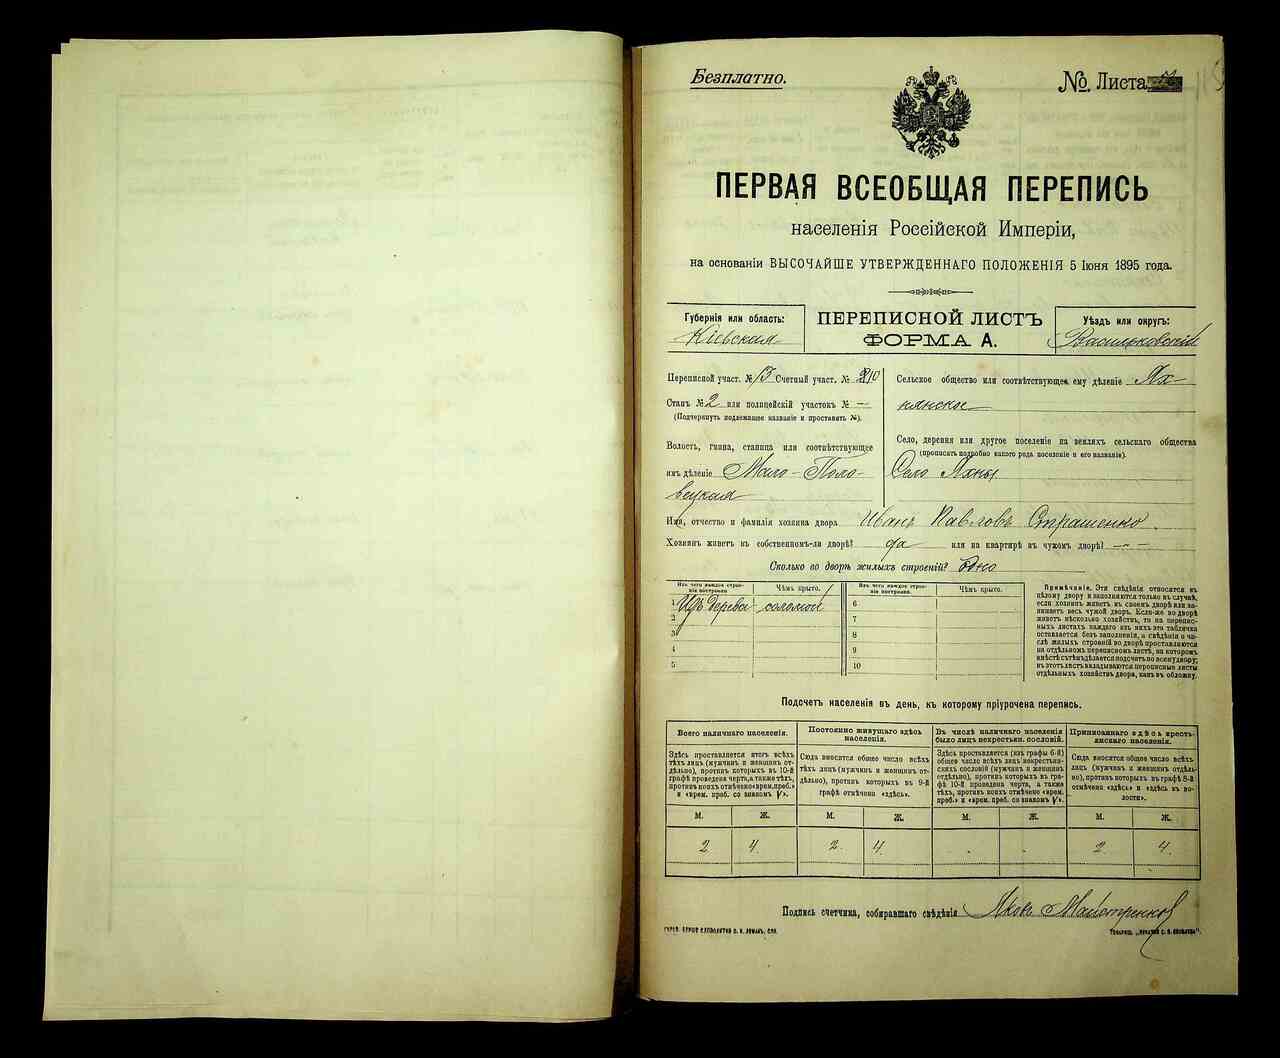 Безплатно.
№. Листа
ПЕРВАЯ ВСЕОБЩАЯ ПЕРЕПИСЬ
населенія Россійской Имперіи,
на основаніи ВЫСОЧАЙШЕ УТВЕРЖДЕННАГО ПОЛОЖЕНІЯ 5 Іюня 1895 года.
Губернія или область:
Кіевская
ПЕРЕПИСНОЙ ЛИСТЪ
ФОРМА А.
Уѣздъ или округъ:
Васильковскій
Переписной участ. № 13 Счетный участ. № 10
Станъ № 2 или полицейскій участокъ № —
(Подчеркнуть подлежащее названіе и проставить №).
Волость, гмина, станица или соотвѣтствующее
имъ дѣленіе Мало-Поло-
вецкая
Сельское общество или соотвѣтствующее ему дѣленіе Ях-
нянское
Село, деревня или другое поселеніе на земляхъ сельскаго общества
(прописать подробно какого рода поселеніе и его названіе).
Село Яхны
Имя, отчество и фамилія хозяина двора Иванъ Павловъ Страшенко.
Хозяинъ живетъ въ собственномъ-ли дворѣ? да или на квартирѣ въ чужомъ дворѣ? — —
Сколько во дворѣ жилыхъ строеній? одно
Изъ чего каждое строе-
ніе построено
Чѣмъ крыто.
1 Изъ дерева соломой
2
3
4
5
Изъ чего каждое строе-
ніе построено
Чѣмъ крыто.
6
7
8
9
10
Примѣчаніе. Эти свѣдѣнія относятся къ
цѣлому двору и заполняются только въ случаѣ,
если хозяинъ живетъ въ своемъ дворѣ или за-
нимаетъ весь чужой дворъ. Если-же во дворѣ
живетъ нѣсколько хозяйствъ, то на перепис-
ныхъ листахъ каждаго изъ нихъ эта табличка
оставляется безъ заполненія, а свѣдѣнія о чи-
слѣ жилыхъ строеній во дворѣ проставляются
на отдѣльномъ переписномъ листѣ, на которомъ
вмѣстѣ съ тѣмъ дѣлается подсчетъ по всему двору;
въ этотъ листъ вкладываются переписные листы
отдѣльныхъ хозяйствъ двора, какъ въ обложку.
Подсчетъ населенія въ день, къ которому пріурочена перепись.
Всего наличнаго населенія.
Здѣсь проставляется итогъ всѣхъ
тѣхъ лицъ (мужчинъ и женщинъ от-
дѣльно), противъ которыхъ въ 10-й
графѣ проведена черта, а также тѣхъ,
противъ коихъ отмѣчено «врем. преб.»
и «врем. преб. со знакомъ V».
М. Ж.
2 4
Постоянно живущаго здѣсь
населенія.
Сюда вносится общее число всѣхъ
тѣхъ лицъ (мужчинъ и женщинъ от-
дѣльно), противъ которыхъ въ 9-й
графѣ отмѣчена «здѣсь».
М. Ж.
2. 4
Въ числѣ наличнаго населенія
было лицъ некрестьян. сословій.
Здѣсь проставляется (изъ графы 6-й)
общее число всѣхъ лицъ некрестьян-
скихъ сословій (мужчинъ и женщинъ
отдѣльно), противъ которыхъ въ гра-
фѣ 10-й проведена черта, а также
тѣхъ, противъ коихъ отмѣчено «врем.
преб.» и «врем. преб. со знакомъ V».
М. Ж.
Приписаннаго здѣсь кресть-
янскаго населенія.
Сюда вносится общее число всѣхъ
лицъ (мужчинъ и женщинъ отдѣль-
но), противъ которыхъ въ графѣ 8-й
отмѣчена «здѣсь» и «здѣсь въ во-
лости».
М. Ж.
2 4.
Подпись счетчика, собиравшаго свѣдѣнія Яковъ Майстренко